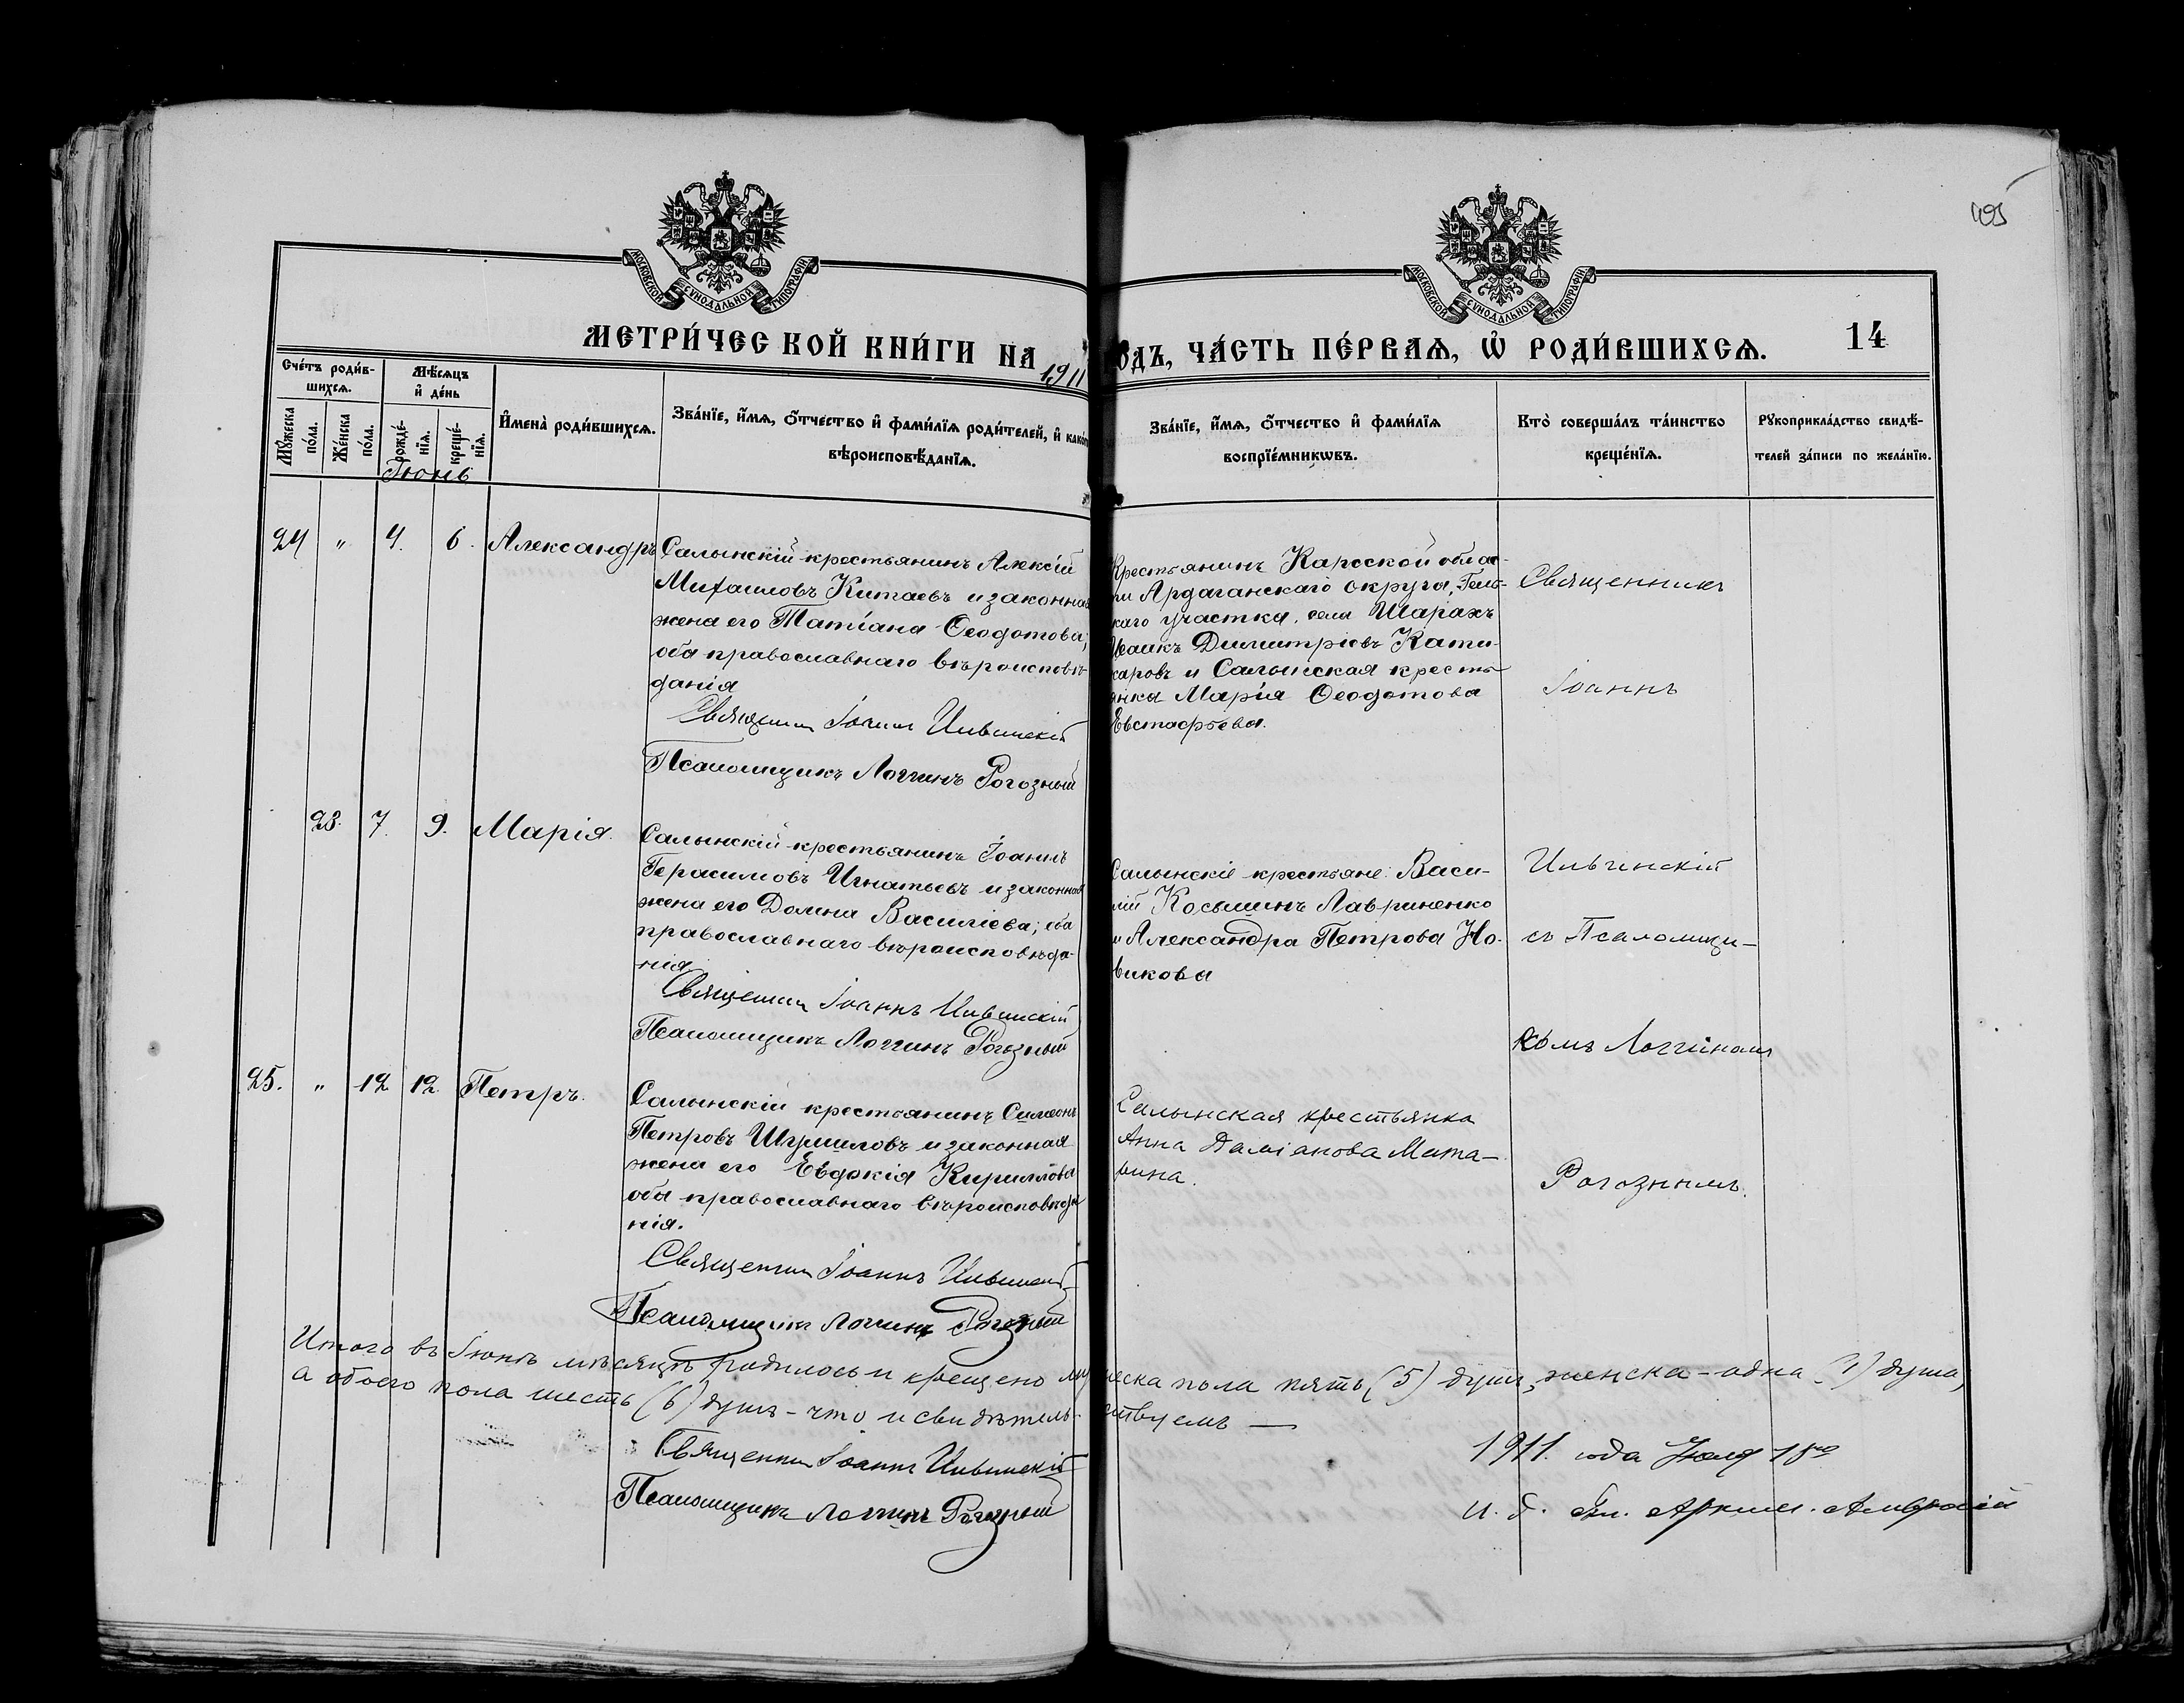 405
МОСКОВСКОЙ СѴНОДАЛЬНОЙ ТИПОГРАФІИ
МОСКОВСКОЙ СѴНОДАЛЬНОЙ ТИПОГРАФІИ
МЕТРИ́ЧЕС КОЙ КНИ́ГИ НА 1911
ОДЪ, ЧА́СТЬ ПЕ́РВАѦ, Ѽ РОДИ́ВШИХСѦ.
14
Сче́тъ роди́в-
шихсѧ.
Мѣ́сѧцъ
и҆ де́нь
Мꙋжеска
по́ла.
Же́нска
по́ла.
рожде́-
нїѧ.
креще́-
нїѧ.
И҆мена̀ роди́вшихсѧ.
Зва́нїе, и҆́мѧ, ѻ҆́тчество и҆ фами́лїѧ роди́телей, и҆ како́г
вѣроисповѣ́данїѧ.
Зва́нїе, и҆́мѧ, ѻ҆́тчество и҆ фами́лїѧ
воспрїе́мникѡвъ.
Кто̀ соверша́лъ та́инство
креще́нїѧ.
Рꙋкоприкла́дство свидѣ́-
телей за́писи по жела́нїю.
Іюнь
24 " 4. 6. Александръ
Салынскій крестьянинъ Алексій
Михаиловъ Китаевъ и законная
жена его Татіана Ѳеодотова;
оба православнаго вѣроисповѣ-
данія
Священникъ Іоаннъ Ильинскій
Псаломщикъ Логгинъ Рогозный
Крестьянинъ Карсской облас-
ти Ардаганскаго округа,
каго участка, села Шарахъ
Исаакъ Димитріевъ Кати-
каровъ и Салынская кресть-
янка Марія Ѳеодотова
Евстафьева.
Священникъ
Іоаннъ
23. 7. 9. Марія.
Салынскій крестьянинъ Іоаннъ
Герасимовъ Игнатьевъ и законная
жена его Домна Василіева; оба
православнаго вѣроисповѣда-
нія
Священникъ Іоаннъ Ильинскій
Псаломщикъ Логгинъ Рогозный
Салынскіе крестьяне: Васи-
лій Косьминъ Лавриненко
и Александра Петрова Но-
викова
Ильинскій
съ Псаломщи-
комъ Логгиномъ
25. " 12 12 Петръ.
Салынскій крестьянинъ Симеонъ
Петровъ Шумиловъ и законная
жена его Евдокія Кириллова
оба православнаго вѣроисповѣда
нія.
Священникъ Іоаннъ Ильинскій
Псаломщикъ Логгинъ Рогозный
Салынская крестьянка
Анна Даміанова Мата-
рина.
Рогознымъ.
Итого въ Іюнѣ мѣсяцѣ родилось и крещено мужеска пола пять (5) душъ, женска – одна (1) душа,
а обоего пола шесть (6) душъ – что и свидѣтельствуемъ —
Священникъ Іоаннъ Ильинскій
Псаломщикъ Логгинъ Рогозный
1911. года Іюля 18го
и. д. Бл. Архим. Амвросій